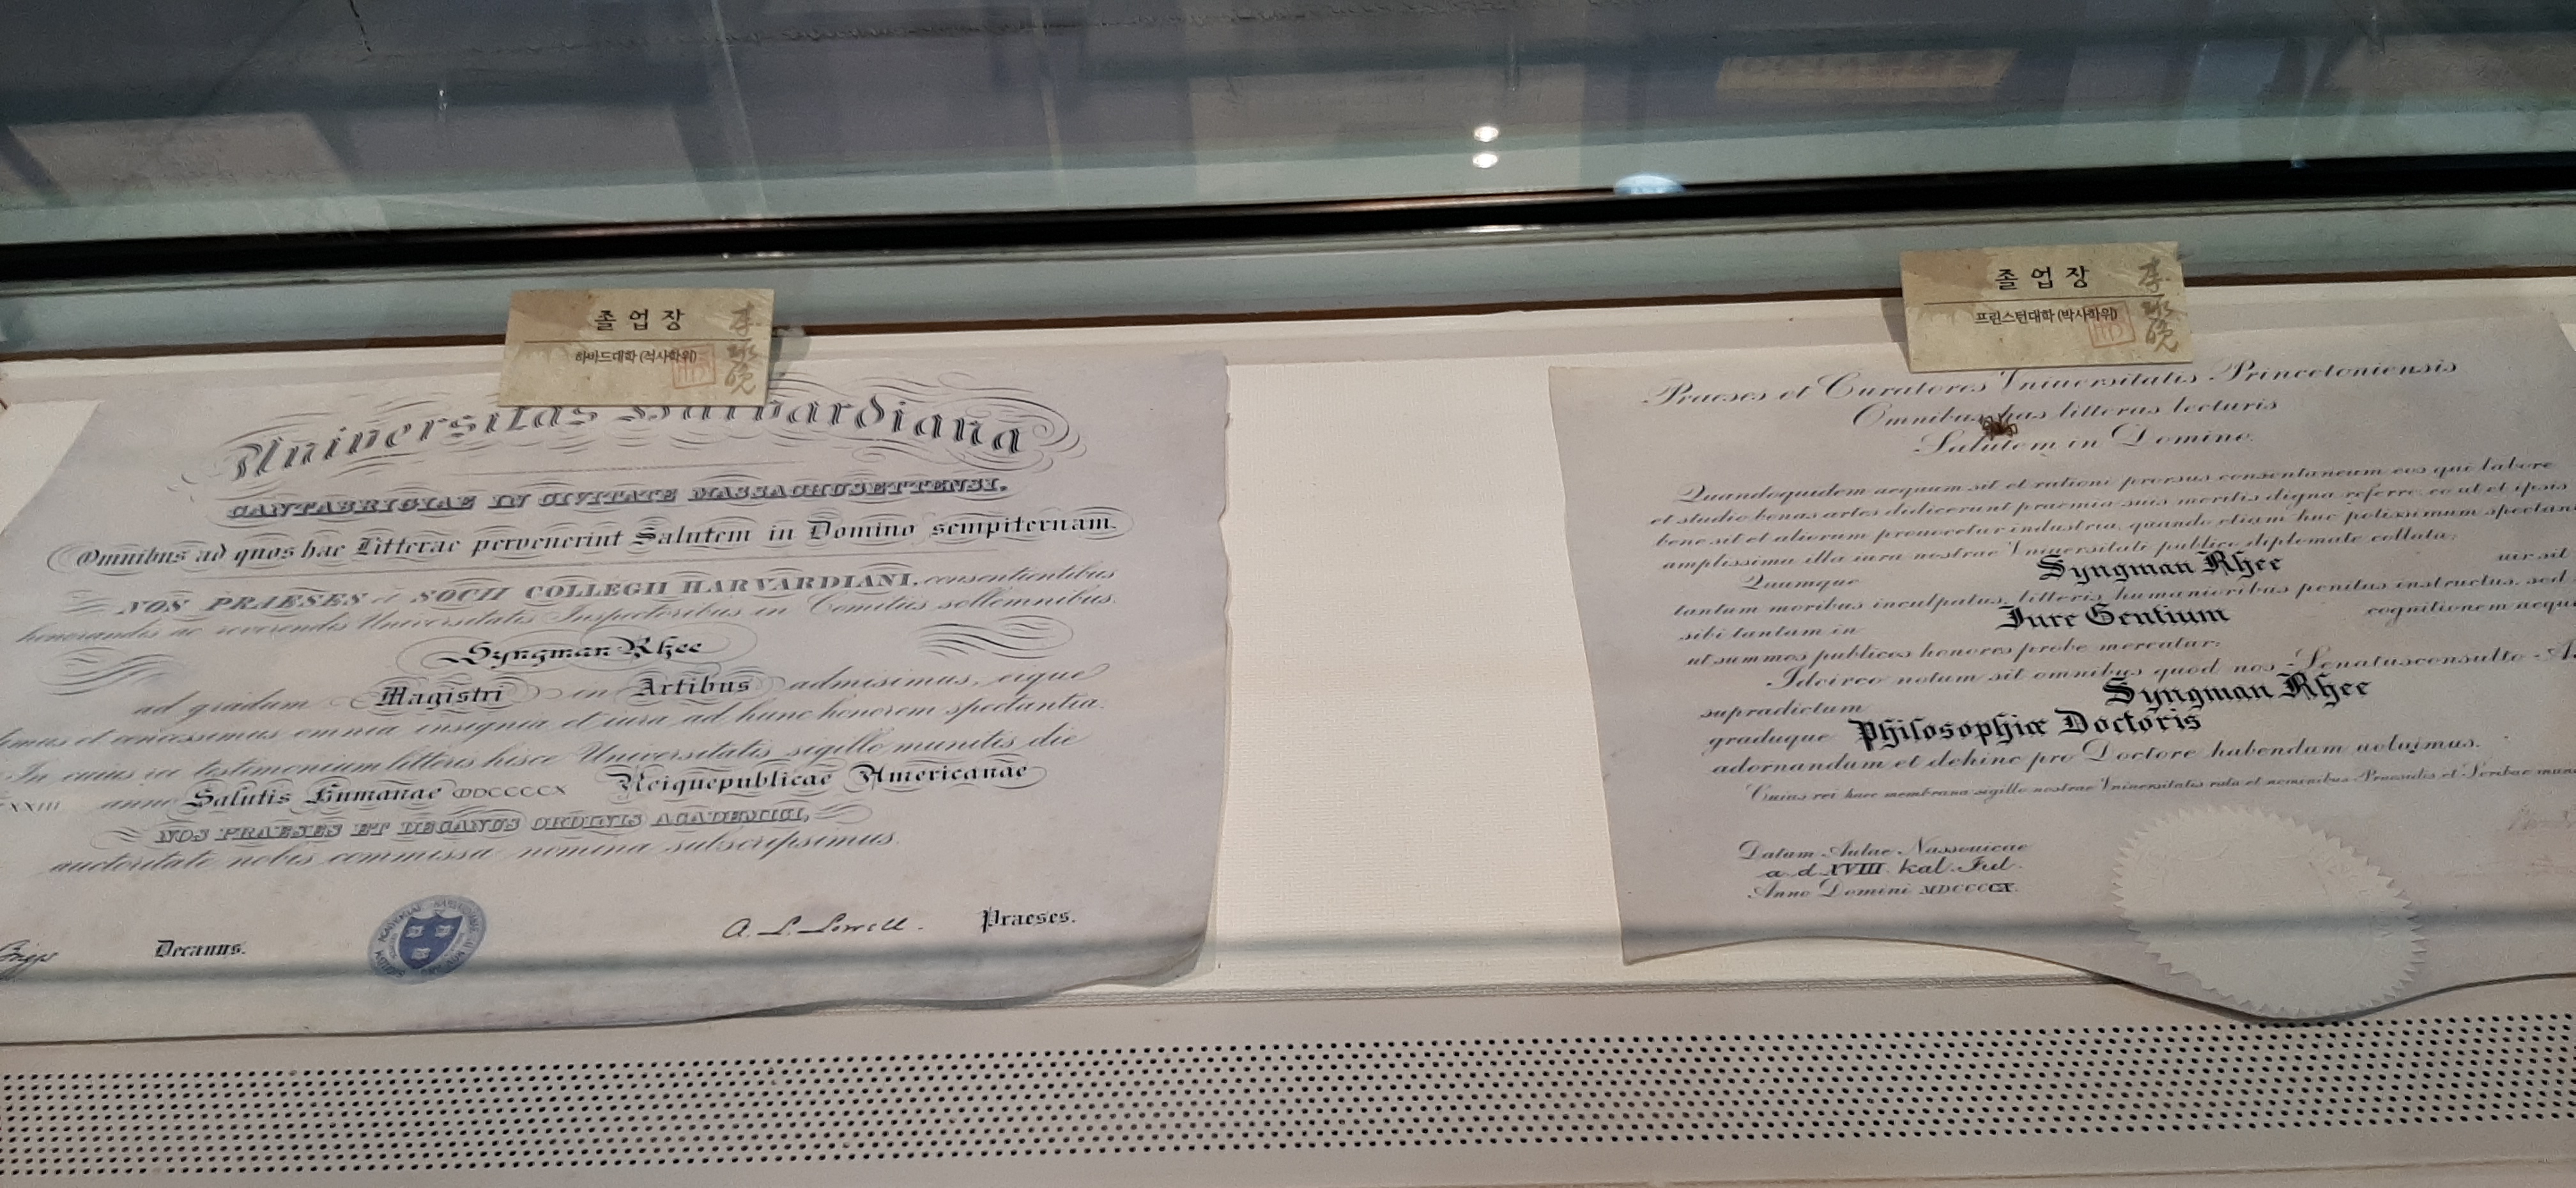 졸업장
하바드대학 (석사학위)
李承晩
Universitas Harvardiana
CANTABRIGIAE IN CIVITATE MASSACHUSETTENSI.
Omnibus ad quos hae Litterae pervenerint Salutem in Domino sempiternam.
NOS PRAESES et SOCII COLLEGII HARVARDIANI, consentientibus
honorandis ac reverendis Universitatis Inspectoribus in Comitiis sollemnibus.
Syngman Rhee
ad gradum Magistri in Artibus admisimus, eique
et concessimus omnia insignia et iura ad hunc honorem spectantia.
In cuius rei testimonium litteris hisce Universitatis sigillo munitis die
XXIII anno Salutis Humanae MDCCCCX Reiquepublicae Americanae
NOS PRAESES ET DECANUS ORDINIS ACADEMICI,
auctoritate nobis commissa nomina subscripsimus.
Briggs Decanus. A. L. Lowell. Praeses.
졸업장
프린스턴대학 (박사학위)
李承晩
Praeses et Curatores Vniuersitatis Princetoniensis
Omnibus has litteras lecturis
Salutem in Domino.
Quandoquidem aequum sit et rationi prorsus consentaneum eos qui labore
et studio bonas artes didicerunt praemia suis meritis digna referre eo ut et ipsis
bene sit et aliorum prouocetur industria, quando etiam huc potissimum spectant
amplissima illa iura nostrae Vniuersitati publico diplomate collata;
Quumque Syngman Rhee uir sit
tantum moribus inculpatus, litteris humanioribus penitus instructus, sed
sibi tantam in Jure Gentium cognitionem acqui
ut summos publicos honores probe mereatur:
Idcirco notum sit omnibus quod nos Senatusconsulto
supradictum Syngman Rhee
graduque Philosophiæ Doctoris
adornandum et dehinc pro Doctore habendum uoluimus.
Cuius rei haec membrana sigillo nostrae Vniuersitatis rata et nominibus Praesidis et Scribae muni
Datum Aulae Nassouicae
a. d. XVIII kal. Jul.
Anno Domini MDCCCCX.